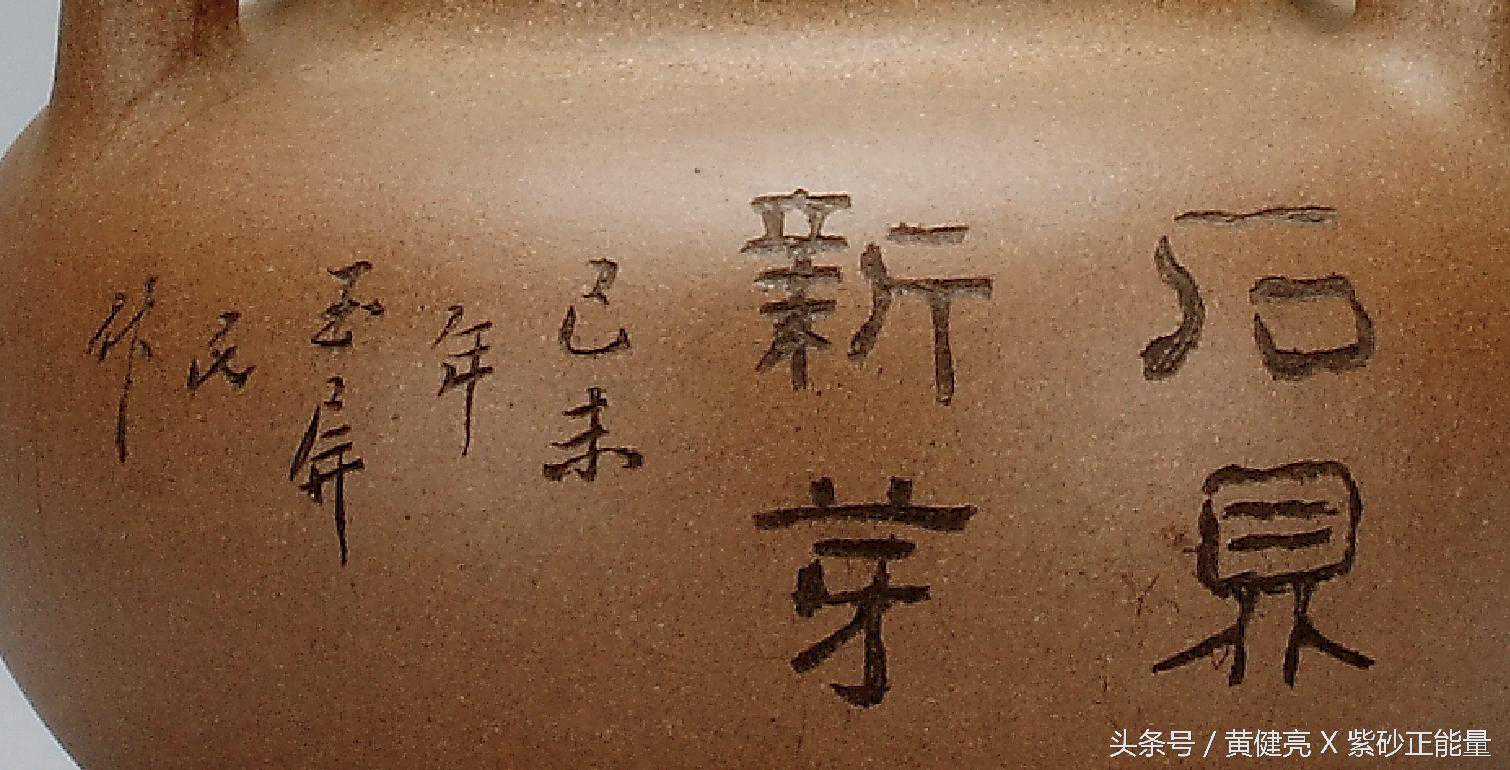 石鼎
新芽
己未
年
玉屏
氏
作
头条号 / 黄健亮 X 紫砂正能量